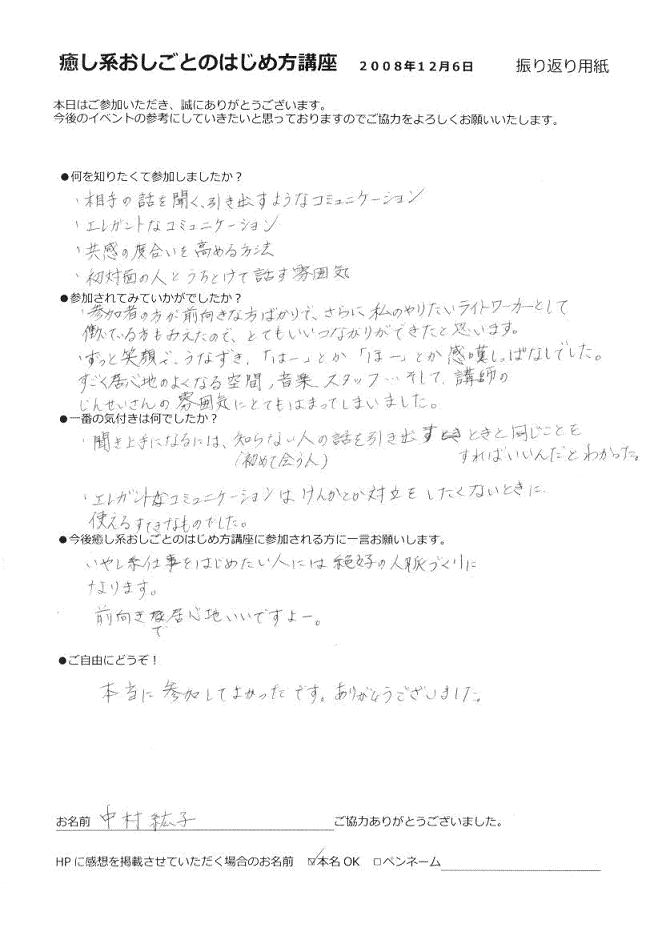 癒し系おしごとのはじめ方講座　2008年12月6日　振り返り用紙
本日はご参加いただき、誠にありがとうございます。
今後のイベントの参考にしていきたいと思っておりますのでご協力をよろしくお願いいたします。
●何を知りたくて参加しましたか？
・相手の話を聞く、引き出すようなコミュニケーション
・エレガントなコミュニケーション
・共感の度合いを高める方法
・初対面の人とうちとけて話す雰囲気
●参加されてみていかがでしたか？
・参加者の方が前向きな方ばかりで、さらに私のやりたいライトワーカーとして
働いている方もみえたので、とてもいいつながりができたと思います。
・ずっと笑顔で、うなずき、「はー」とか「ほー」とか感嘆しっぱなしでした。
すごく居心地のよくなる空間、音楽、スタッフ…そして、講師の
じんせいさんの雰囲気にとてもはまってしまいました。
●一番の気付きは何でしたか？
・聞き上手になるには、知らない人の話を引き出すときと同じことを
(初めて会う人)　すればいいんだとわかった。
・エレガントなコミュニケーションはけんかとか対立をしたくないときに
使えるすてきなものでした。
●今後癒し系おしごとのはじめ方講座に参加される方に一言お願いします。
いやし系仕事をはじめたい人には絶好の人脈づくりに
なります。
前向きで居心地いいですよー。
●ご自由にどうぞ！
本当に参加してよかったです。ありがとうございました。
お名前　中村紘子　ご協力ありがとうございました。
HPに感想を掲載させていただく場合のお名前　☑本名OK　□ペンネーム